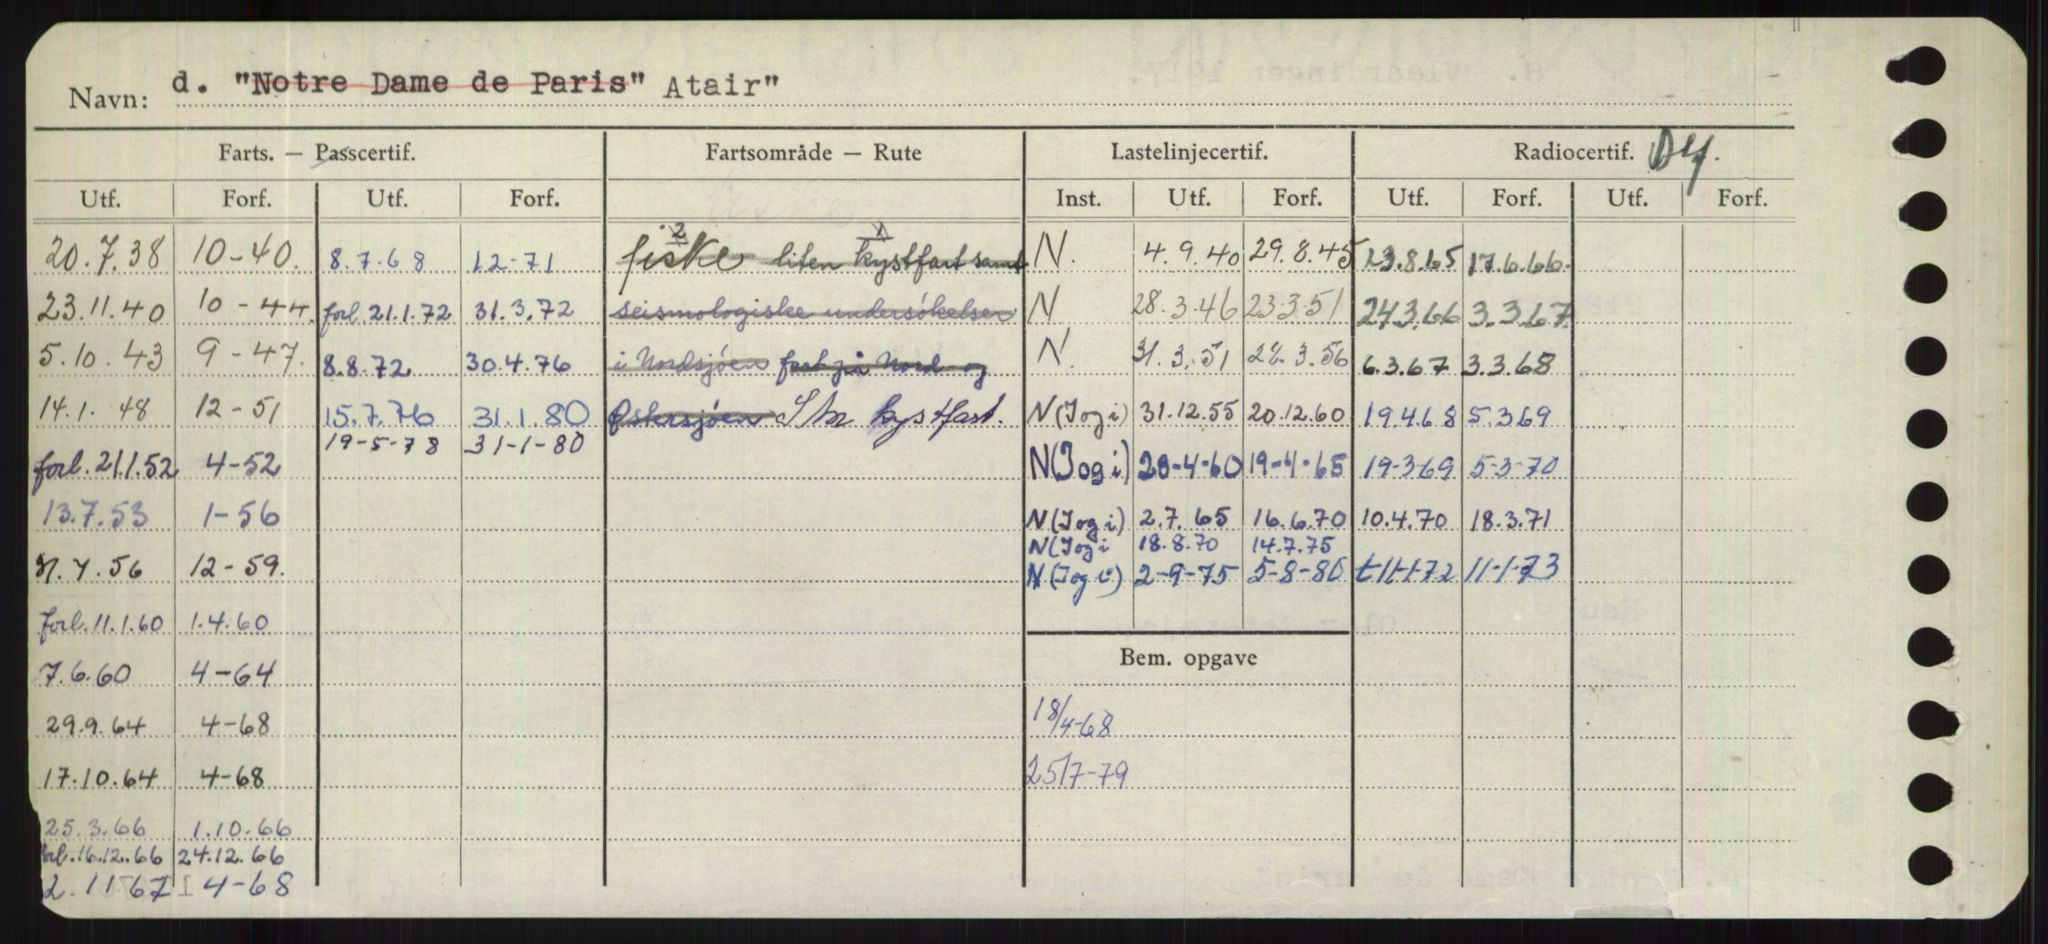 Navn: d. "Notre Dame de Paris" Atair"
Farts. — Passcertif. Fartsområde — Rute Lastelinjecertif. Radiocertif.
Utf. Forf. Utf. Forf. Inst. Utf. Forf. Utf. Forf. Utf. Forf.
20.7.38 10-40. 8.7.68 12-71 fiske liten kystfart samt N. 4.9.40 29.8.45 23.8.65 17.6.66.
23.11.40 10-44. forl. 21.1.72 31.3.72 seismologiske undersökelser N 28.3.46 23.3.51 24.3.66 3.3.67.
5.10.43 9-47. 8.8.72 30.4.76 i Nordsjöen fart på Nord og N. 31.3.51 28.3.56 6.3.67 3.3.68
14.1.48 12-51 15.7.76 31.1.80 Østersjöen kystfart. N(I og i) 31.12.55 20.12.60 19.4.68 5.3.69
19-5-78 31-1-80
forl. 21.1.52 4-52 N(I og i) 28-4-60 19-4-65 19-3-69 5-3-70
13.7.53 1-56 N(I og i) 2.7.65 16.6.70 10.4.70 18.3.71
N(I og i 18.8.70 14.7.75
12-59. N(I og i) 2-9-75 5-8-80 11-1-72 11-1-73
forl. 11.1.60 1.4.60
7.6.60 4-64 Bem. opgave
29.9.64 4-68 18/4-68
17.10.64 4-68 25/7-79
25.3.66 1.10.66
forl. 16.12.66 24.12.66
2.11 67 4-68